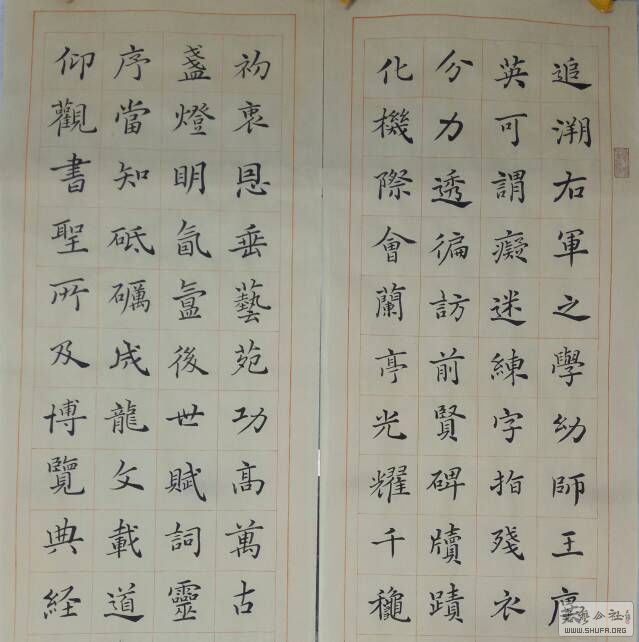 追溯右軍之學幼師王廙
英可謂癡迷練字指殘衣
分力透徧訪前賢碑牘蹟
化機際會蘭亭光耀千龝
初衷恩垂藝苑功高萬古
盞燈明氤氳後世賦詞靈
序當知砥礪成龍文載道
仰觀書聖所及博覽典経
公社
WWW.SHUFA.ORG